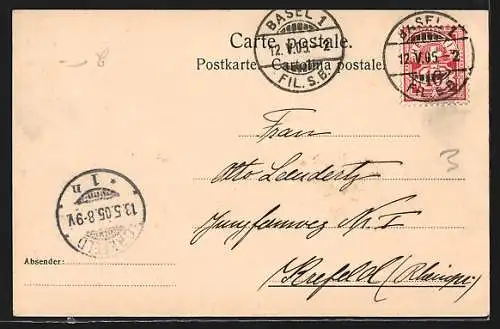 8
BASEL 1
12.V.05 - 2
FIL. S.B.
BASEL 1
12.V.05 - 2
FIL. S.B.
Carte postale.
Postkarte. Cartolina postale.
Frau
Otto Leendertz
Jungfernweg Nr. I
Krefeld
3
* 1 n
13.5.05.8-9V.
CREFELD
Absender: